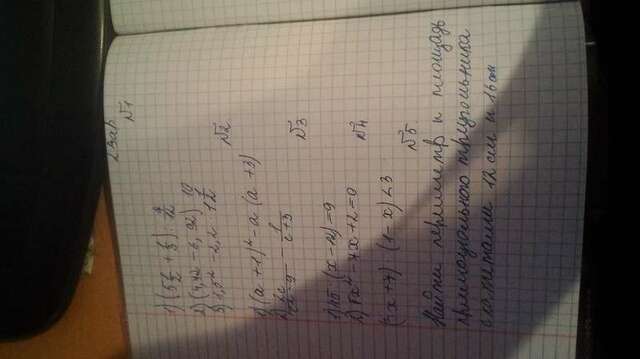 2 вар
№1
1) (5 1/2 + 1/3) : 5/12
2) (4,42 - 6,92) 10
3) 1,5² - 2,2 · 1 1/2
№2
1) (a + 1)² - a (a + 3)
- 1/(c+3)
№3
1) 45 : (x - 12) = 9
2) 5x² - 7x + 2 = 0
№4
(3x + 7) - (1 - x) < 3
№5
Найти периметр и площадь
прямоугольного треугольника
с катетами 12 см и 16 см